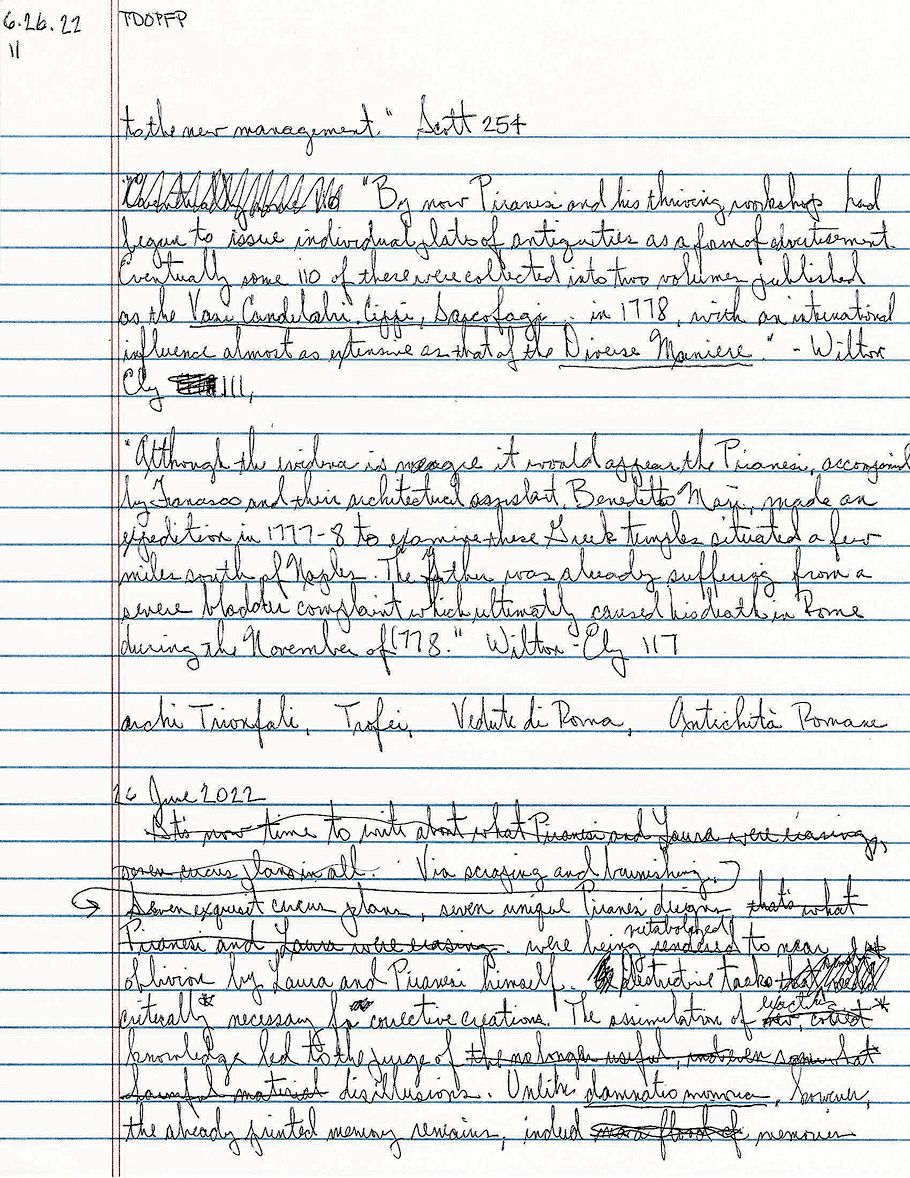 6.26.22 TDOPFP
11
to the new management." Scott 254
"Eventually some 110 "By now Piranesi and his thriving workshop had
begun to issue individual plats of antiquities as a form of advertisement.
Eventually some 110 of these were collected into two volumes published
as the Vasi Candelabri, Cippi, Sarcofagi... in 1778, with an international
influence almost as extensive as that of the Diverse Maniere." - Wilton
Cly 111,
"Although the evidence is meagre it would appear the Piranesi, accompanied
by Francesco and their architectural assistant, Benedetto Mori, made an
expedition in 1777-8 to examine these Greek temples situated a few
miles south of Naples. The father was already suffering from a
severe bladder complaint which ultimately caused his death in Rome
during the November of 1778." Wilton-Ely 117
archi Trionfali, Trofei, Vedute di Roma, Antichità Romane
26 June 2022
It's now time to write about what Piranesi and Laura were erasing,
seven circus plans in all. Via scraping and burnishing.
Seven exquisit circus plans, seven unique Piranesi designs that's what
Piranesi and Laura were erasing. were being rendered metabolized to near
oblivion by Laura and Piranesi himself. destructive tasks that
critically* necessary for corrective creations. The assimilation of new, correct
knowledge led to the purge of the no longer useful, and even somewhat
harmful material disillusions. Unlike damnatio memoria, however,
the already printed memory remains, indeed more flood of memories